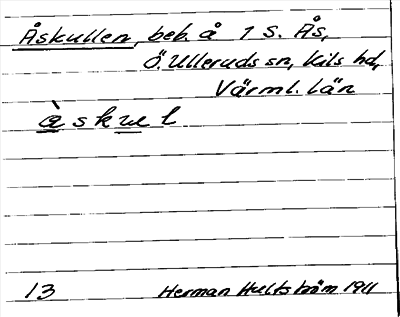 Åskullen, beb. å 1 s. Ås,
Ö. Ulleruds sn, Kils hd,
Värml. län
àskul
13 Herman Hultström 1911